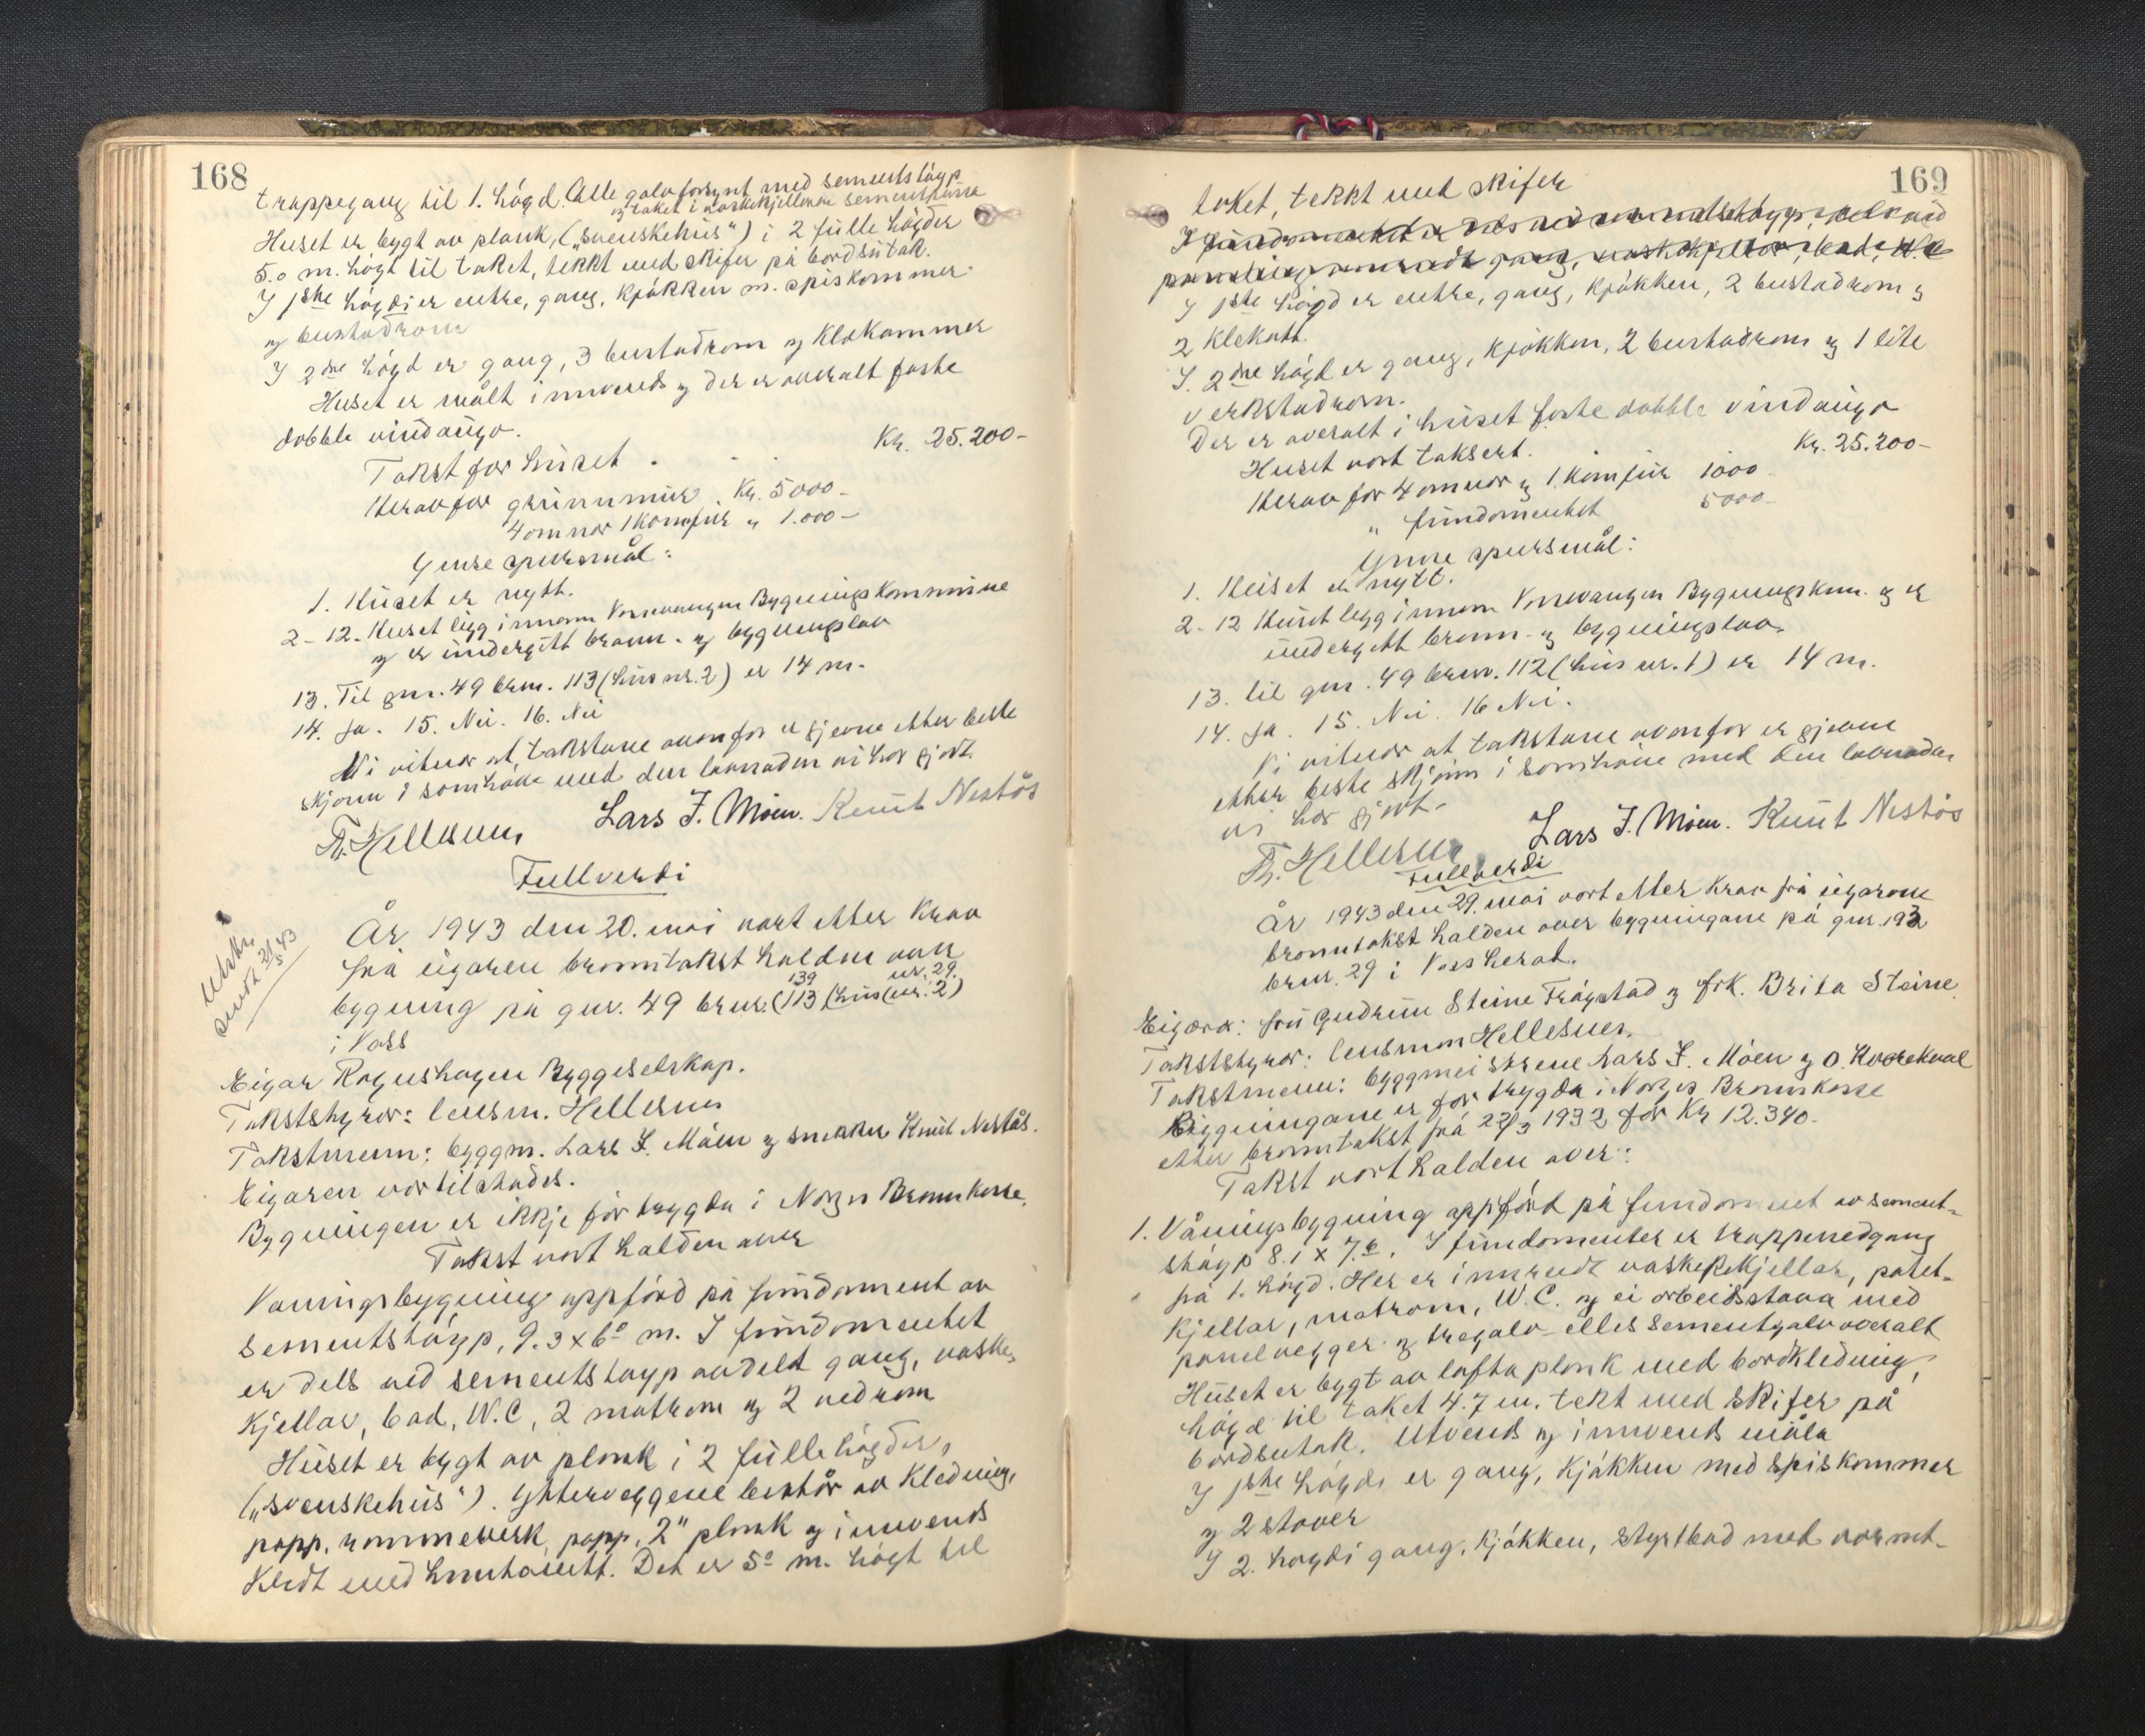 168
trappegang til 1. høgd. Alle golv forsynt med sementstøyp
og taket i vaskekjellaren sementpussa
Huset er bygt av plank, („svenskehus") i 2 fulle høgder
5.0 m. høgt til taket, tekkt med skifer på bordsutak.
I 1ste høgdi er entre, gang, kjøkken m. spiskammer
og bustadrom
I 2dre høgd er gang, 3 bustadrom og klekammer
Huset er målt innvends og der er overalt faste
dobble vindaugo.
Takst for huset . Kr. 25.200-
Herav for grunnmur . Kr. 5000-
4 omnar 1 komfur " 1.000-
Ymse spursmål:
1. Huset er nytt.
2-12. Huset ligg innom Vossevangen Bygningskommune
og er undergitt brann- og bygningslov
13. Til gnr. 49 brnr. 113 (hus nr. 2) er 14 m.
14. Ja. 15. Nei. 16. Nei
Vi vitnar at takstane ovanfor er gjevne etter beste
skjønn i samhøve med den lovnaden vi har gjort.
Th. Hellesnes Lars J. Møen. Knut Nestås
Fullverdi
Utskr.
sendt 21/5 43
År 1943 den 20. mai vart etter krav
frå eigaren branntakst halden over
139 nr. 29.
bygning på gnr. 49 brnr. (113 (hus nr. 2)
i Voss
Eigar Rognshagen Byggeselskap.
Takststyrar: lensm. Hellesnes
Takstmenn: byggm. Lars J. Møen og snekker Knut Nestås.
Eigaren var tilstades.
Bygningen er ikkje før trygda i Norges Brannkasse.
Takst vart halden over
Våningsbygning oppførd på fundament av
sementstøyp, 9.3 x 6° m. I fundamentet
er dels ved sementstøyp avdelt gang, vaske-
kjellar, bad, W.C, 2 matrom og 2 vedrom
Huset er bygt av plank i 2 fulle høgder,
(„svenskehus"). Ytterveggene består av kledning,
papp, rammeverk, papp, 2" plank og innvends
kledt med huntonitt. Det er 5° m. høgt til
169
taket, tekkt med skifer
I fundamentet er dels ved sementstøyp, dels ved
I 1ste høgd er entre, gang, kjøkken, 2 bustadrom og
2 klekott.
I. 2dre høgd er gang, kjøkken, 2 bustadrom og 1 lite
verkstadrom.
Der er overalt i huset faste dobble vindaugo
Huset vart taksert. Kr. 25.200-
Herav for 4 omnar og 1 komfur 1000-
" fundamentet 5000-
Ymse spursmål:
1. Huset er nytt.
2-12 Huset ligg innom Vossevangen Bygningskom. og er
undergitt brann- og bygningslov.
13. til gnr. 49 brnr. 112 (hus nr. 1) er 14 m.
14. Ja. 15. Nei. 16 Nei.
Vi vitnar at takstane ovanfor er gjevne
etter beste skjønn i samhøve med den lovnaden
vi har gjort-
Th. Hellesnes Lars J. Møen. Knut Nestås
Fullverdi
År 1943 den 29. mai vart etter krav frå eigarane
branntakst halden over bygningane på gnr. 193
brnr. 29 i Voss herad.
Eigarar: fru Gudrun Steine Trågstad og frk. Brita Steine.
Takststyrar: lensmann Hellesnes.
Takstmenn: byggmeistrane Lars J. Møen og O. Horvekval
Bygningane er før trygda i Norges Brannkasse
etter branntakst frå 22/3 1932 for Kr 12.340.
Takst vart halden over:
1. Våningsbygning oppførd på fundament av sement-
støyp 8.1 x 7.6. I fundamentet er trappenedgang
frå 1. høgd. Her er innreidt vaskekjellar, potet-
kjellar, matrom, W.C. og ei arbeidsstova med
panelvegger og tregolv- elles sementgolv overalt
Huset er bygt av lafta plank med bordkledning,
høgd til taket 4.7 m. tekt med skifer på
bordsutak. Utvends og innvends måla
I 1ste høgdi er gang, kjøkken med spiskammer
og 2 stover
I 2. høgdi gang, kjøkken, styrtbad med varmt-